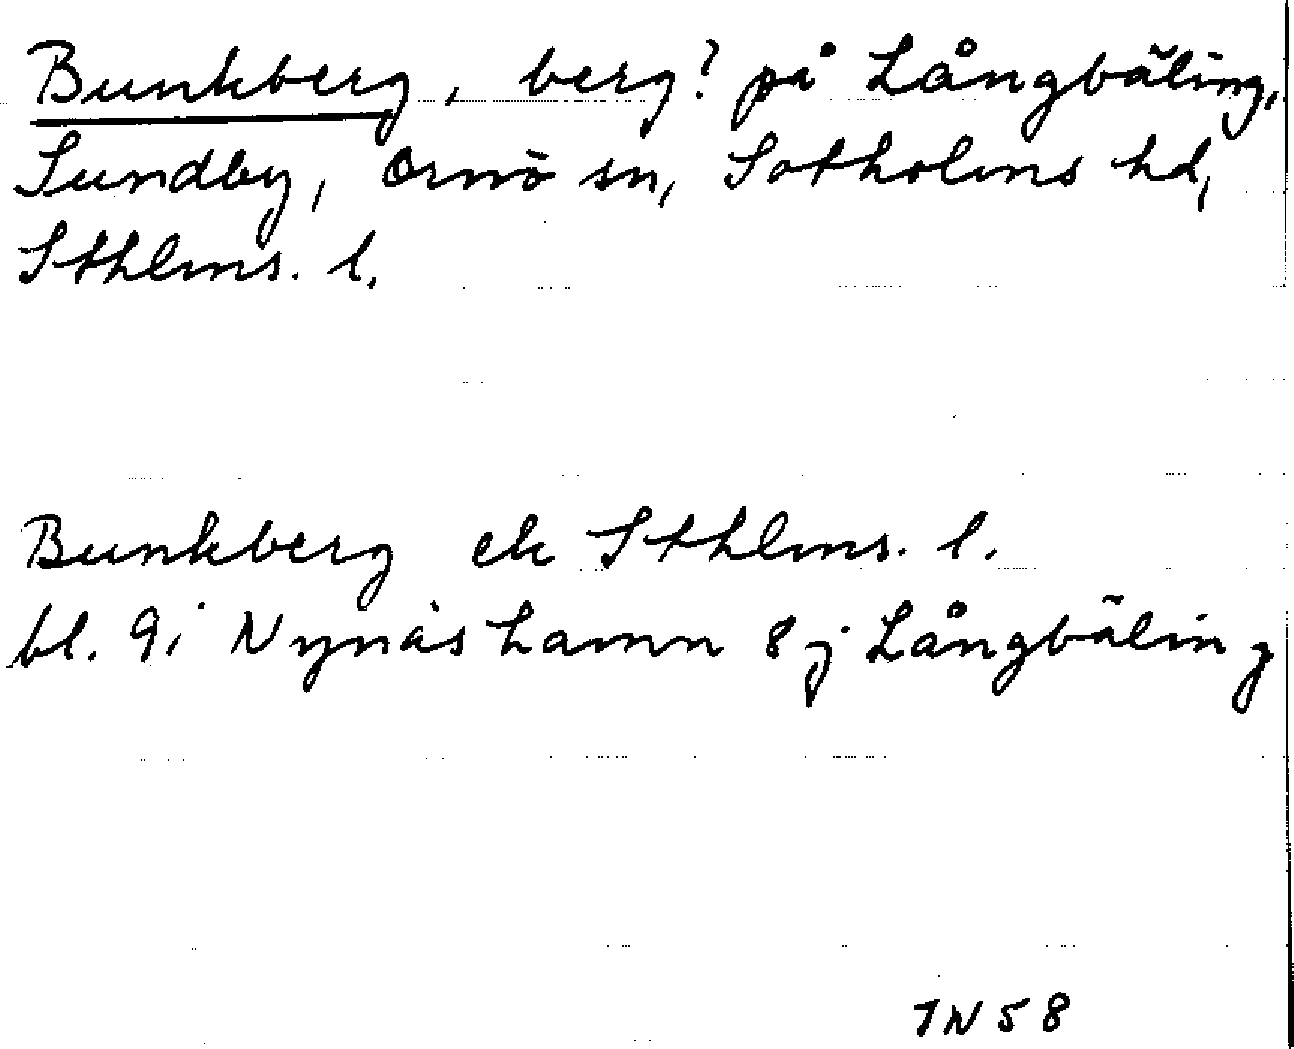 Bunkberg, berg? på Långbäling,
Sundby, Ornö sn, Sotholms hd,
Sthlms. l.
Bunkberg ek Sthlms. l.
bl. 9i Nynäshamn 8j Långbäling
IN 58